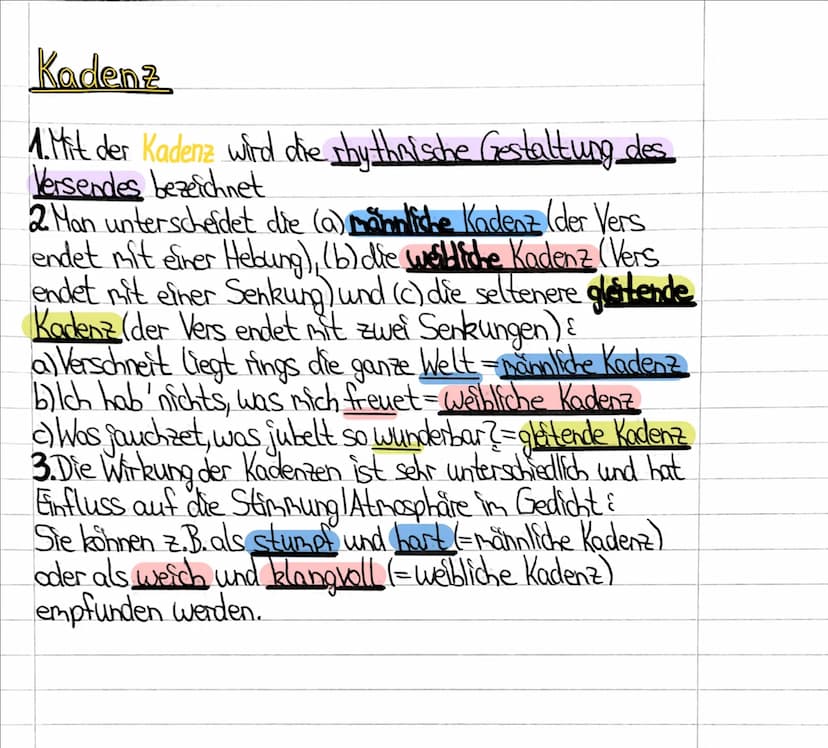 Kadenz
1. Mit der Kadenz wird die rhythmische Gestaltung des
Versendes bezeichnet
2. Man unterscheidet die (a) männliche Kadenz (der Vers
endet mit einer Hebung), (b) die weibliche Kadenz (Vers
endet mit einer Senkung) und (c) die seltenere gleitende
Kadenz (der Vers endet mit zwei Senkungen):
a) Verschneit liegt rings die ganze Welt = männliche Kadenz
b) Ich hab' nichts, was mich freuet = weibliche Kadenz
c) Was jauchzet, was jubelt so wunderbar? = gleitende Kadenz
3. Die Wirkung der Kadenzen ist sehr unterschiedlich und hat
Einfluss auf die Stimmung/Atmosphäre im Gedicht:
Sie können z.B. als stumpf und hart (= männliche Kadenz)
oder als weich und klangvoll (= weibliche Kadenz)
empfunden werden.